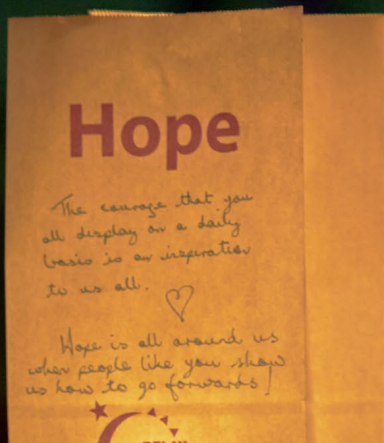 Hope
The courage that you
all display on a daily
basis is an inspiration
to us all.
Hope is all around us
when people like you show
us how to go forwards!
RELAY